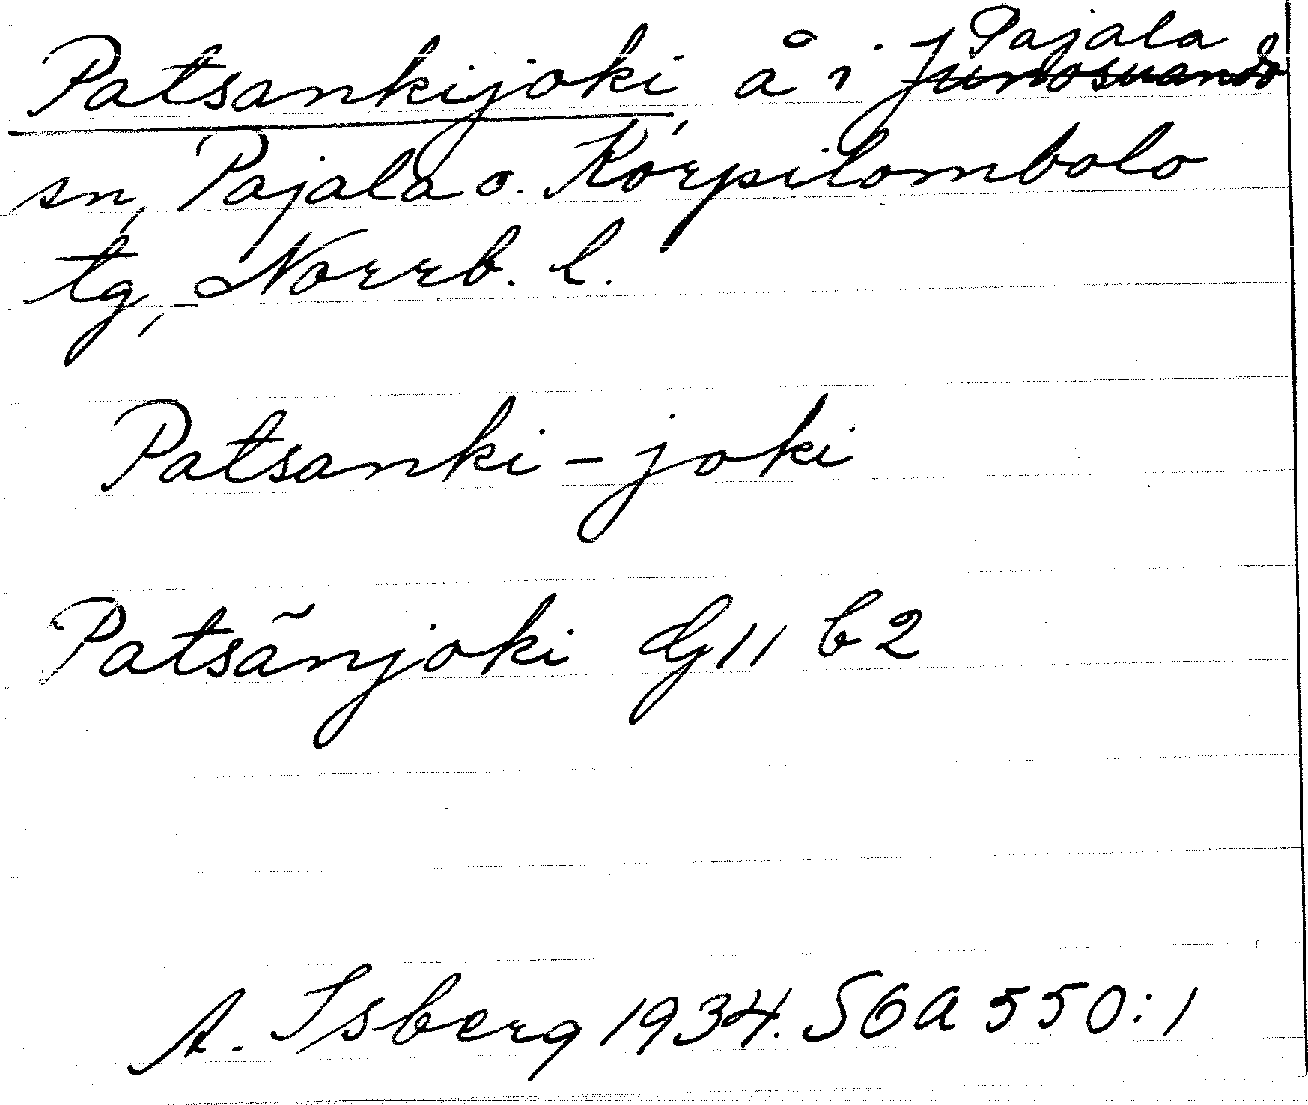 Patsankijoki, å i Pajala Junosuando
sn, Pajala o. Korpilombolo
tg, Norrb. l.
Patsanki-joki
Patsãnjoki Gll b2
A. Isberg 1934. SOA 550:1